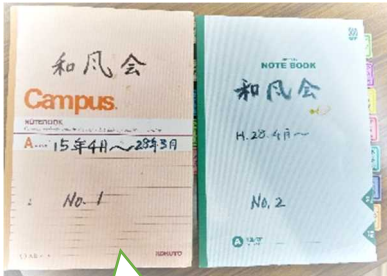 和風会
Campus
NOTEBOOK
A 15年4月~28年3月
No.1
KOKUYO
NOTE BOOK
和風会
H.28.4月~
No.2
A